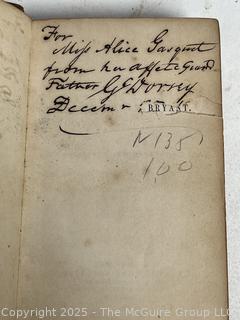 For
Miss Alice Gasquet
from her affecte Grand
Father G. Dorsey
Decemr
BRYANT.
N 135
100
© 2025 - The McGuire Group LLC